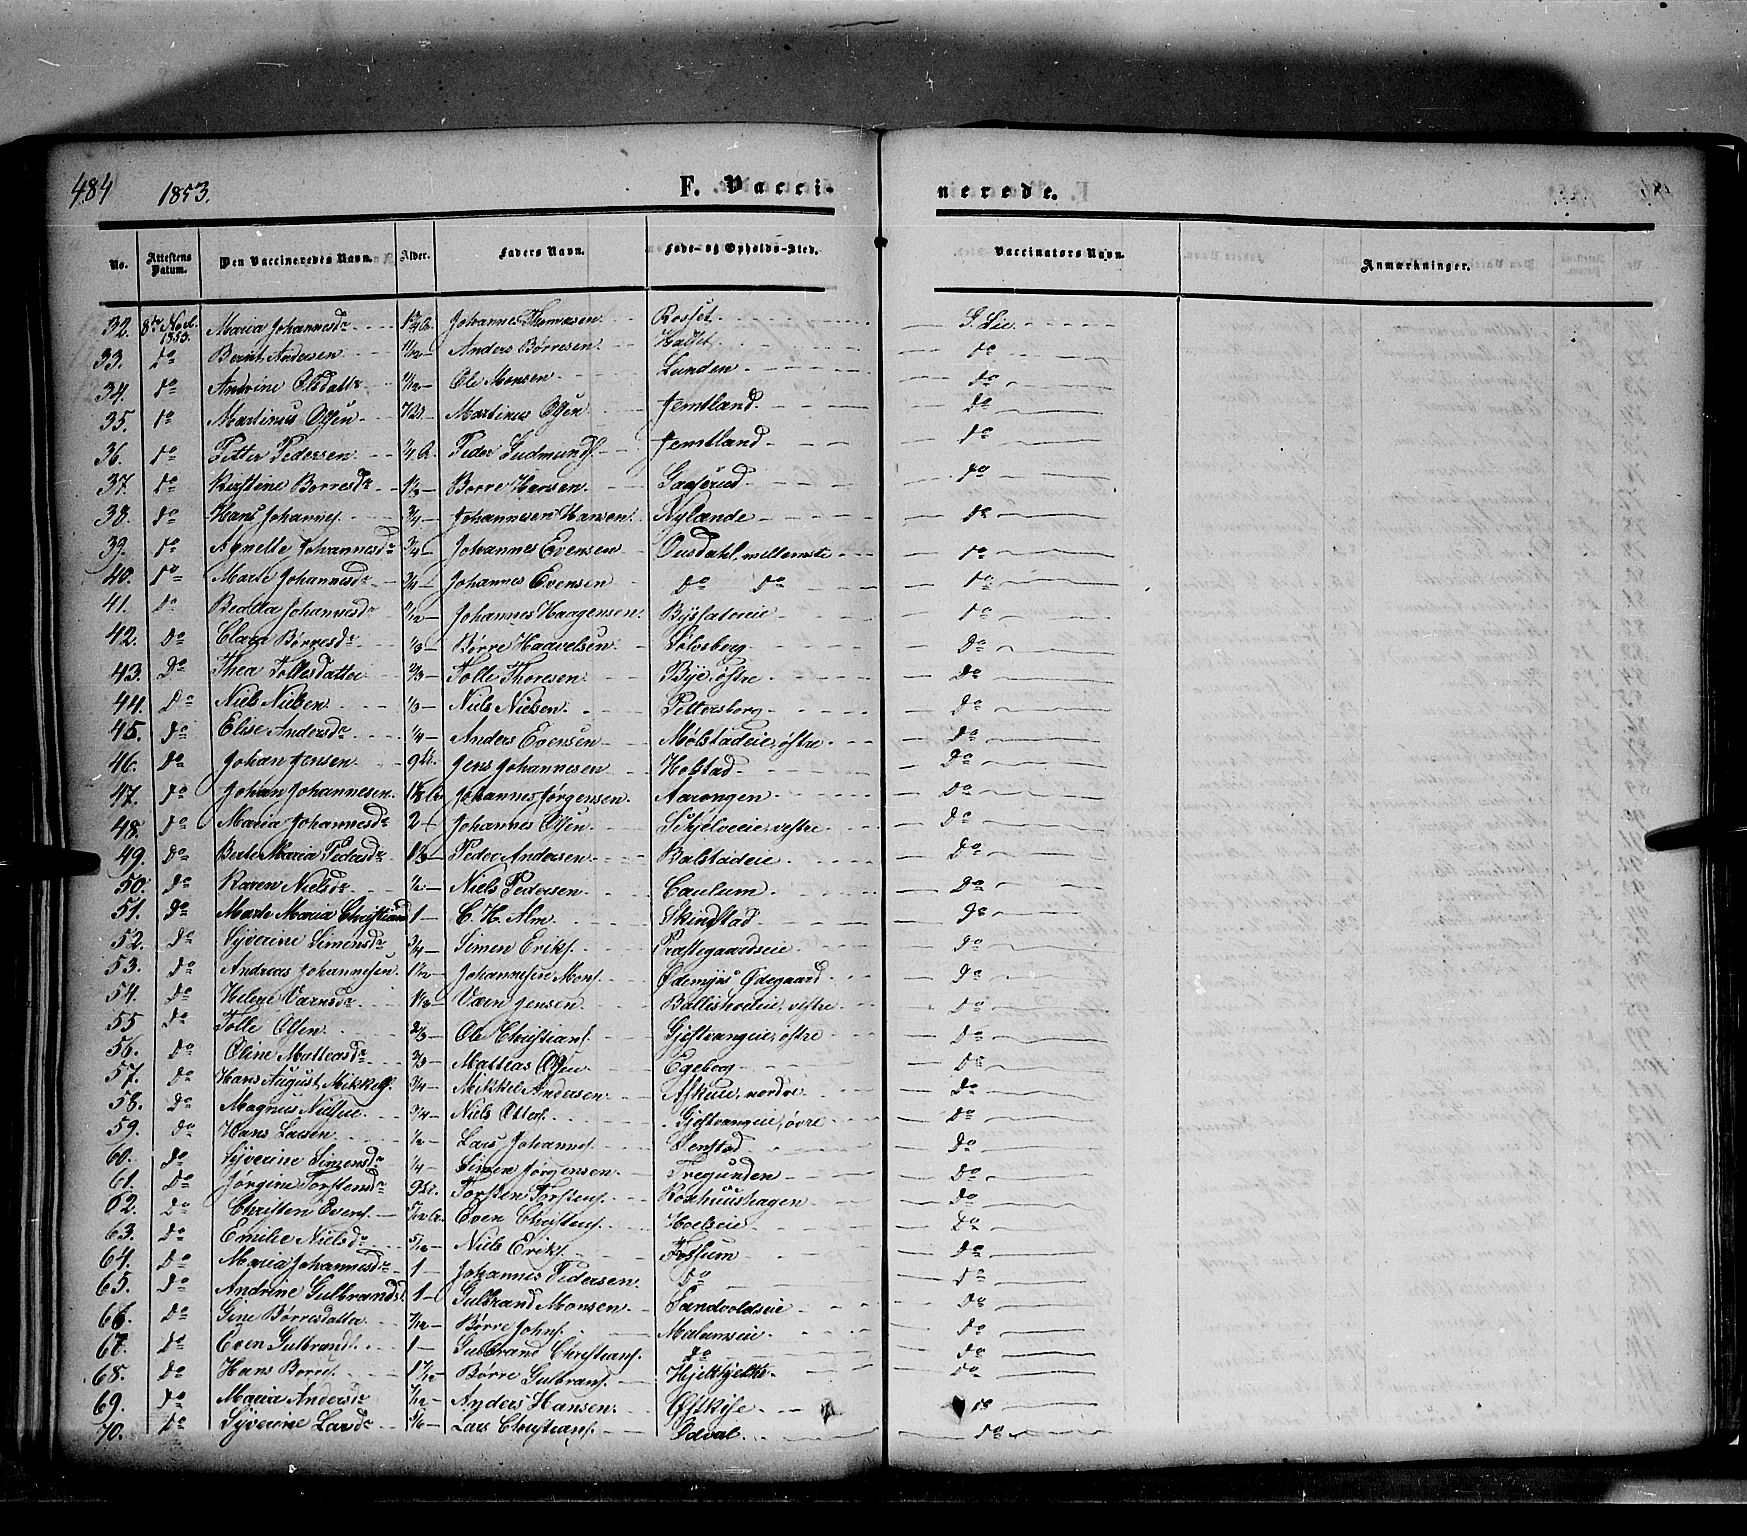 484 1853. F. Vacci- nerede.
No. Attestens Datum. Den Vaccineredes Navn. Alder. Faders Navn. Føde- og Opholds-Sted. Vaccinators Navn. Anmærkninger.
32. 8de Novbr. 1853. Maria Johannesdr Johannes Thomasen Rosset G. Lie
33. Do Bernt Andersen Anders Børresen do
34. do Andrine Olsdattr Ole Monsen Lunden do
35. do Martinus Olsen Martinus Olsen Jemtland do
36. do Petter Pedersen Peder Gudmunds. Jemtland do
37. do Kirstene Borresdr 1/3 Borre Hansen Gaaserud do
38. do Hans Johannes. 3/4 Johannesen Hansen Nylænde do
39. do Agnethe Johannesdr 3/4 Johannes Evensen Ousdahl, mellemste do
40. do Marte Johannesdr 3/4 Johannes Evensen do do do
41. do Johannesdr 1/2 Johannes Haagensen do
42. Do Clara Børresdr 1/3 Børre Haavelsen Do
43. Do Thea Tollesdatter 2/3 Tolle Thoresen Bye, østre Do
44. Do Niels Nielsen 1/3 Niels Nielsen Pettersborg Do
45. Do Elise Andersdr Anders Evensen Mølstadeie, østre Do
46. Do Johan Jensen Jens Johannesen Holstad Do
47. Do Johan Johannesen Johannes Jørgensen Do
48. Do Maria Johannesdr 2 Johannes Olsen Skjelveeie, vestre Do
49. Do Berte Maria Pedersdr Peder Andersen Balstadeie Do
50. Do Karen Nielsdr 1/2 Niels Pedersen Caulum Do
51. Do Marte Maria Christiand 1 C. H. Alm Skindstad Do
52. Do Syverine Simensdr 3/4 Simen Eriks. Præstegaardseie Do
53. Do Andreas Johannesen 1 1/2 Johannesen Mons. Ødemyis Ødegaard Do
54. Do Helene Varnsdr Værn Jensen Ballishoeleie, vestre Do
55 Do Tolle Olsen 2/3 Ole Christians. Gjestvangeie, østre Do
56. Do Oline Matteasdr 2/3 Matteas Olsen Egeborg Do
57. Do Hans August Mikkels. 3/4 Mikkel Andersen nordre Do
58. Do Magnus Nielsen 3/4 Niels Ottes. Gjestvangeie, øvre Do
59. Do Hans Larsen 1/2 Lars Johannes. Do
60. Do Syverine Simensdr 1/4 Simen Jørgensen Tregunden Do
61. Do Jørgine Torstensdr Torsten Torstens. Roxhuushagen Do
62. Do Christen Evens. Even Christens. Hoelseie Do
63. Do Emilie Nielsdr 5/12 Niels Eriks. Fossum Do
64. Do Maria Johannesdr 1 Johannes Pedersen Do Do
65. Do Andrine Gulbrandsd. 1 Gulbrand Monsen Sandvoldseie Do
66. Do Gine Børresdatter 7/12 Børre Johns. Malumseie Do
67. Do Even Gulbrands. 1 Gulbrand Christians. do Do
68. Do Hans Borres. Børre Gulbrans. Do
69. Do Maria Andersdr 7/12 Anders Hansen do
70. Do Syverine Larsdr 5/6 Lars Christians. Ødval do